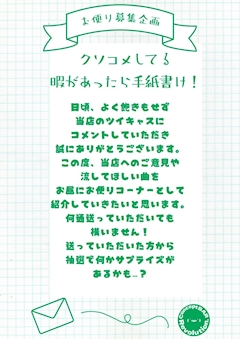 お便り募集企画
クソコメしてる
暇があったら手紙書け！
日頃、よく飽きもせず
当店のツイキャスに
コメントしていただき
誠にありがとうございます。
この度、当店へのご意見や
流してほしい曲を
お昼にお便りコーナーとして
紹介していきたいと思います。
何通送っていただいても
構いません！
送っていただいた方から
抽選で何かサプライズが
あるかも…？
Revolution